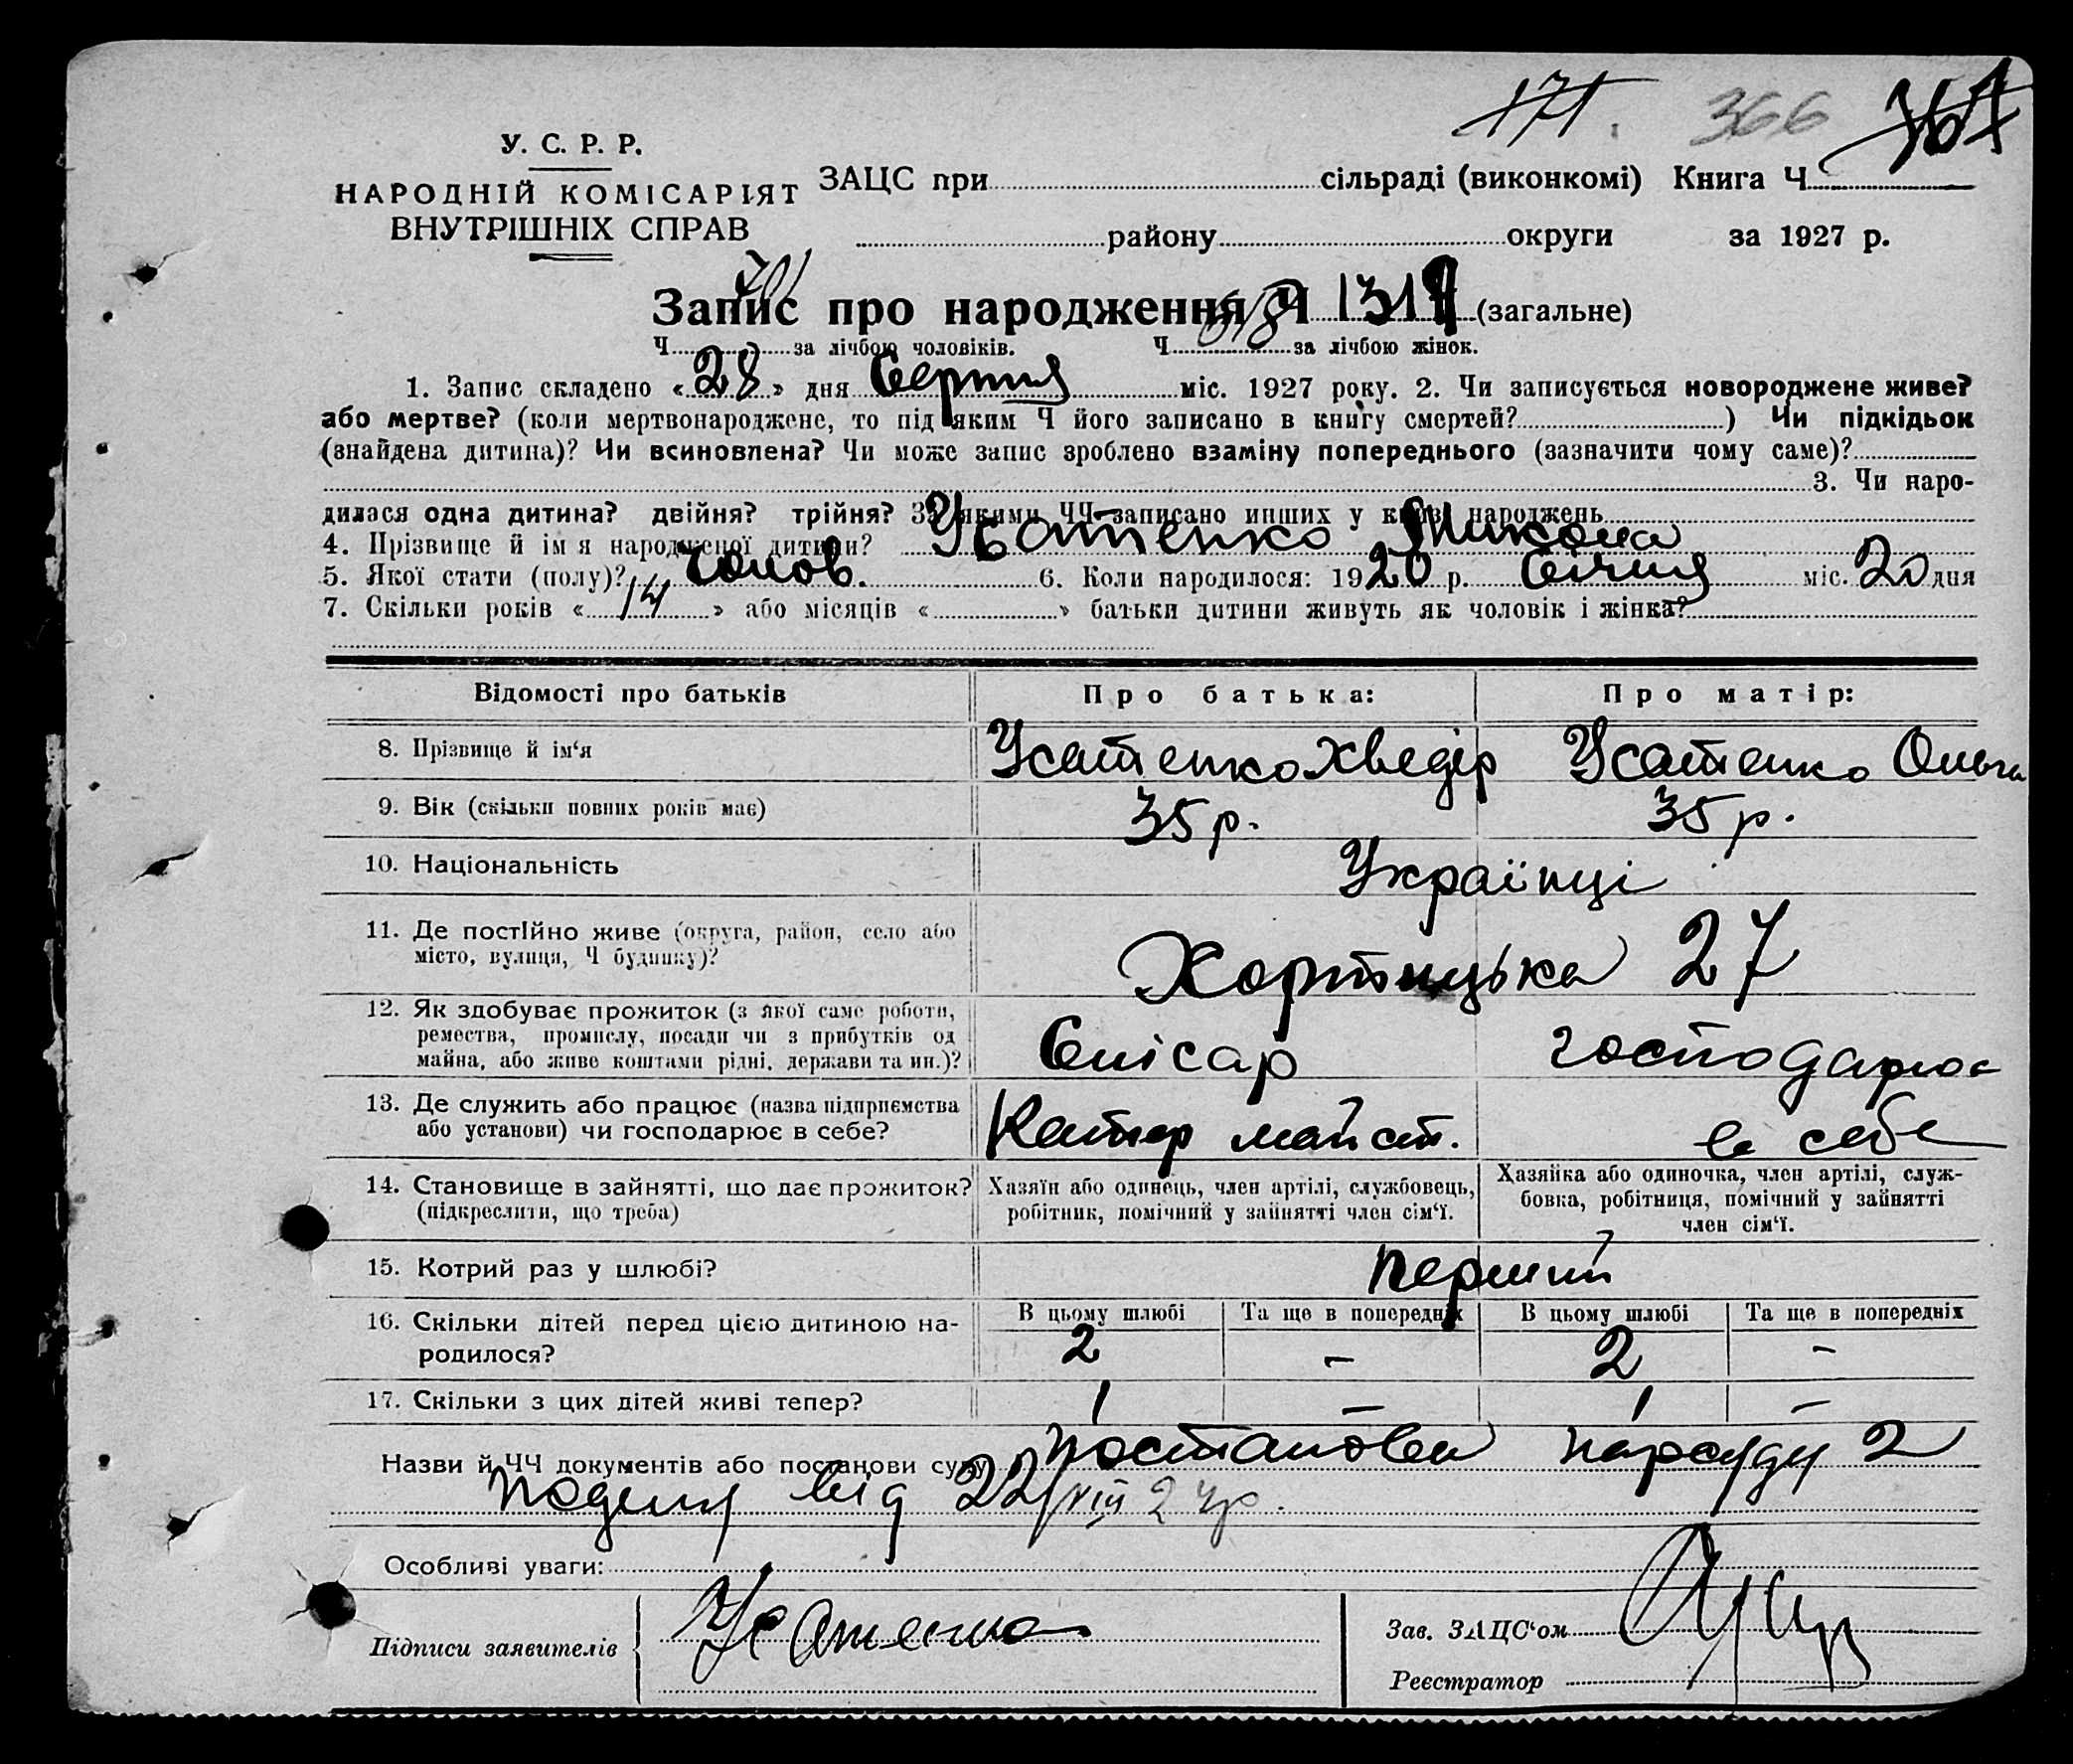 171. 366 367
У. С. Р. Р.
НАРОДНІЙ КОМІСАРІЯТ
ВНУТРІШНІХ СПРАВ
ЗАЦС при сільраді (виконкомі) Книга Ч
району округи за 1927 р.
701
Запис про народження Ч 1317 (загальне)
618
Ч за лічбою чоловіків. Ч за лічбою жінок.
1. Запис складено «28» дня Серпня міс. 1927 року. 2. Чи записується новороджене живе?
або мертве? (коли мертвонароджене, то під яким Ч його записано в книгу смертей? ) Чи підкідьок
(знайдена дитина)? Чи всиновлена? Чи може запис зроблено взаміну попереднього (зазначити чому саме)?
3. Чи наро-
дилася одна дитина? двійня? трійня? За якими ЧЧ записано инших у книзі народжень
4. Прізвище й ім я народженої дитини? Усатенко Микола
5. Якої стати (полу)? чолов. 6. Коли народилося: 1920 р. Січня міс. 20 дня
7. Скільки років «14» або місяців « » батьки дитини живуть як чоловік і жінка?
Відомості про батьків Про батька: Про матір:
8. Прізвище й ім‘я Усатенко Хведір Усатенко Ольга
9. Вік (скільки повних років має) 35 р. 35 р.
10. Національність Українці
11. Де постійно живе (округа, район, село або
місто, вулиця, Ч будинку)? Хортицька 27
12. Як здобуває прожиток (з якої саме роботи,
ремества, промислу, посади чи з прибутків од
майна, або живе коштами рідні, держави та ин.)? Слісар господарює
13. Де служить або працює (назва підприємства
або установи) чи господарює в себе? майст. в себе
14. Становище в зайнятті, що дає прожиток?
(підкреслити, що треба)
Хазяїн або одинець, член артілі, службовець,
робітник, помічний у зайнятті член сім‘ї.
Хазяйка або одиночка, член артілі, служ-
бовка, робітниця, помічний у зайнятті
член сім‘ї.
15. Котрий раз у шлюбі? перший
В цьому шлюбі Та ще в попередніх В цьому шлюбі Та ще в попередніх
16. Скільки дітей перед цією дитиною на-
родилося? 2 – 2 –
17. Скільки з цих дітей живі тепер? 1 – 1 –
Назви й ЧЧ документів або постанови суду постанова нарсуду 2
від 22/VIII 27 р.
Особливі уваги:
Підписи заявителів Усатенко
Зав. ЗАЦС‘ом
Реєстратор